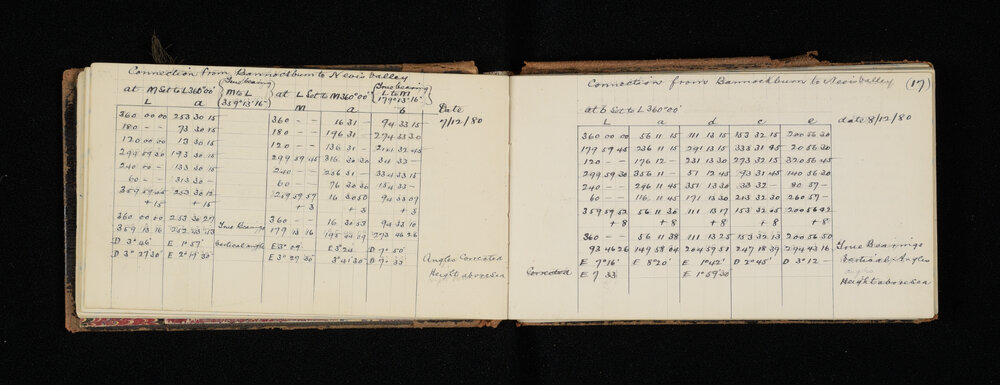 Connection from Bannockburn to Nevis Valley
at M Set to L 360°00' True bearing M to L 359°13'16" at L Set to M 360°00' True bearing L to M 179°13'16"
L a M a b Date
360 00 00 253 30 15 360 - - 16 31 - 94 33 15 7/12/80
180 - - 73 30 15 180 - - 196 31 - 274 33 30
120 00 00 13 30 15 120 - - 136 31 -
299 59 30 193 30 15 299 59 45 316 30 30 34 33 -
240 00 - 133 30 15 240 - - 256 31 - 334 33 15
60 - - 313 30 - 60 - - 76 30 30 154 33 -
359 59 45 253 30 12 259 59 57 16 30 50 94 33 07
+ 15 + 15 + 3 + 3 + 3
360 00 00 253 30 27 True Bearings 360 - - 16 30 53 94 33 10
359 13 16 179 13 16 273 46 26
D 3° 46' E 1° 57' Vertical angles E 3° 09 E 3° 24 D 7° 50'
D 3° 27 30" E 2° 17' 30" E 3° 27' 30" 3° 41' 30" D 7° 33' Angles Corrected
Height above Sea
Connection from Bannockburn to Nevis Valley (17)
at b Set to L 360°00'
L a d c e date 8/12/80
360 00 00 56 11 15 111 13 15 153 32 15 200 56 30
179 59 45 236 11 15 291 13 15 333 31 45 20 56 30
120 - - 176 12 - 231 13 30 273 32 15 320 56 45
299 59 30 356 11 - 51 12 45 93 31 45 140 56 30
240 - - 246 11 45 351 13 30 33 32 - 80 57 -
60 - - 116 11 45 171 13 30 213 32 30 260 57 -
359 59 52 56 11 30 111 13 17 153 32 05 200 56 42
+ 8 + 8 + 8 + 8 + 8
360 - - 56 11 38 111 13 25 153 32 13 200 56 50
93 46 26 149 58 04 204 59 51 247 18 39 294 43 16 True Bearings
E 7° 16' E 8° 20' E 1° 42' D 2° 45' D 3° 12 - Vertical Angles
Corrected E 7 33' E 1° 59' 30"
Height above sea